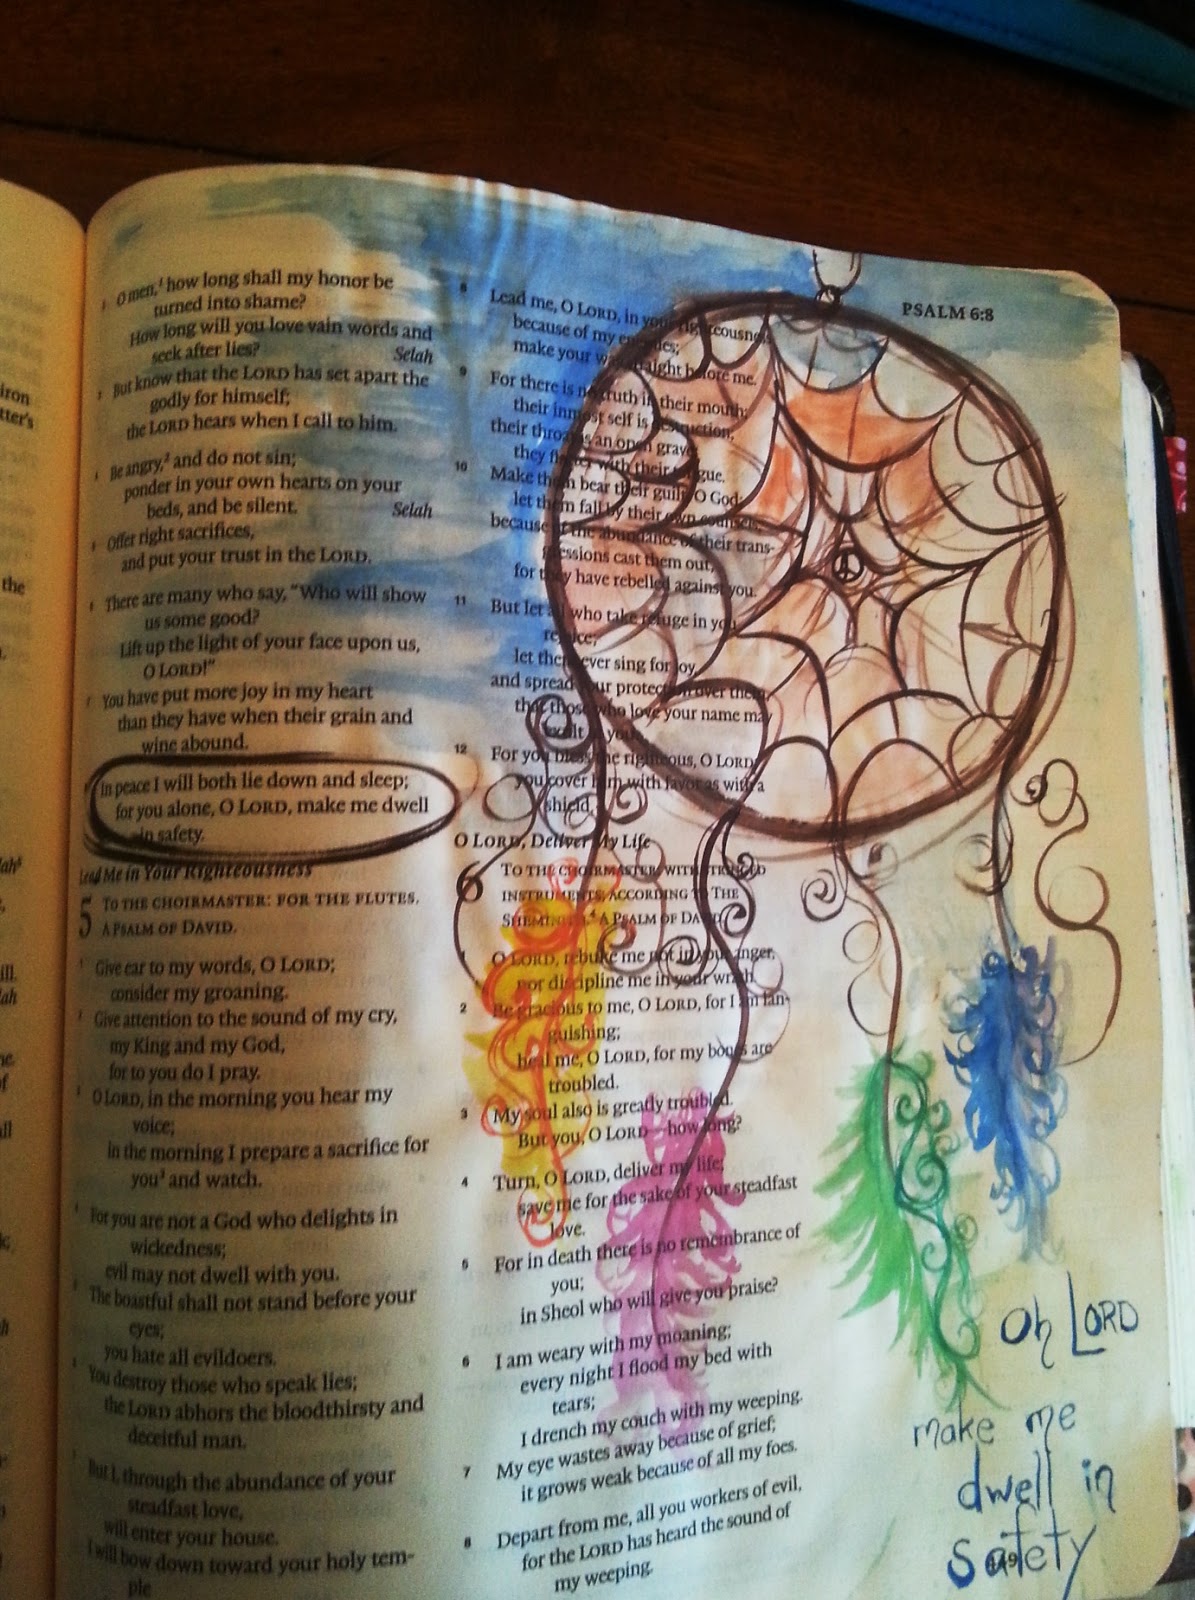 iron
tter's
the
PSALM 6:8
O men,¹ how long shall my honor be
turned into shame?
How long will you love vain words and
seek after lies? Selah
But know that the LORD has set apart the
godly for himself;
the LORD hears when I call to him.
Be angry,² and do not sin;
ponder in your own hearts on your
beds, and be silent. Selah
Offer right sacrifices,
and put your trust in the LORD.
There are many who say, “Who will show
us some good?
Lift up the light of your face upon us,
O LORD!”
You have put more joy in my heart
than they have when their grain and
wine abound.
In peace I will both lie down and sleep;
for you alone, O LORD, make me dwell
in safety.
Lead Me in Your Righteousness
5 TO THE CHOIRMASTER: FOR THE FLUTES.
A PSALM OF DAVID.
Give ear to my words, O LORD;
consider my groaning.
Give attention to the sound of my cry,
my King and my God,
for to you do I pray.
O LORD, in the morning you hear my
voice;
in the morning I prepare a sacrifice for
you³ and watch.
For you are not a God who delights in
wickedness;
evil may not dwell with you.
The boastful shall not stand before your
eyes;
you hate all evildoers.
You destroy those who speak lies;
the LORD abhors the bloodthirsty and
deceitful man.
But I, through the abundance of your
steadfast love,
will enter your house.
I will bow down toward your holy tem-
ple
8 Lead me, O LORD, in your righteousness
because of my enemies;
make your way straight before me.
9 For there is no truth in their mouth;
their inmost self is destruction;
their throat is an open grave;
they flatter with their tongue.
10 Make them bear their guilt, O God;
let them fall by their own counsels;
because of the abundance of their trans-
gressions cast them out,
for they have rebelled against you.
11 But let all who take refuge in you
rejoice;
let them ever sing for joy,
and spread your protection over them,
that those who love your name may
exult in you.
12 For you bless the righteous, O LORD;
you cover him with favor as with a
shield.
O LORD, Deliver My Life
6 TO THE CHOIRMASTER: WITH STRINGED
INSTRUMENTS; ACCORDING TO THE
SHEMINITH.⁴ A PSALM OF DAVID.
1 O LORD, rebuke me not in your anger,
nor discipline me in your wrath.
2 Be gracious to me, O LORD, for I am lan-
guishing;
heal me, O LORD, for my bones are
troubled.
3 My soul also is greatly troubled.
But you, O LORD—how long?
4 Turn, O LORD, deliver my life;
save me for the sake of your steadfast
love.
5 For in death there is no remembrance of
you;
in Sheol who will give you praise?
6 I am weary with my moaning;
every night I flood my bed with
tears;
I drench my couch with my weeping.
7 My eye wastes away because of grief;
it grows weak because of all my foes.
8 Depart from me, all you workers of evil,
for the LORD has heard the sound of
my weeping.
oh LORD
make me
dwell in
safety
449